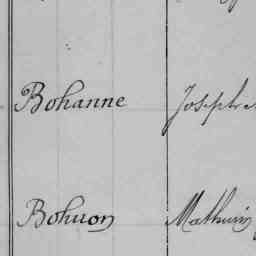 Bohanne Joseph
Bohuon Mathurin